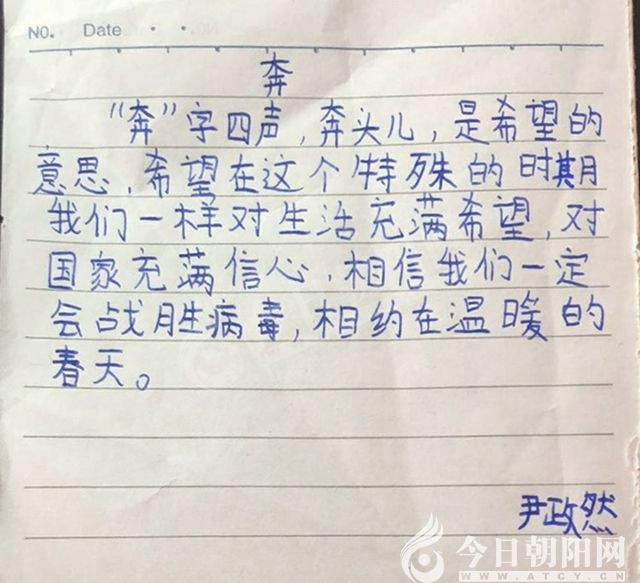 NO. Date
奔
“奔”字四声,奔头儿,是希望的
意思,希望在这个特殊的时期
我们一样对生活充满希望,对
国家充满信心,相信我们一定
会战胜病毒,相约在温暖的
春天。
尹政然
今日朝阳网
WWW.ATCY.CN